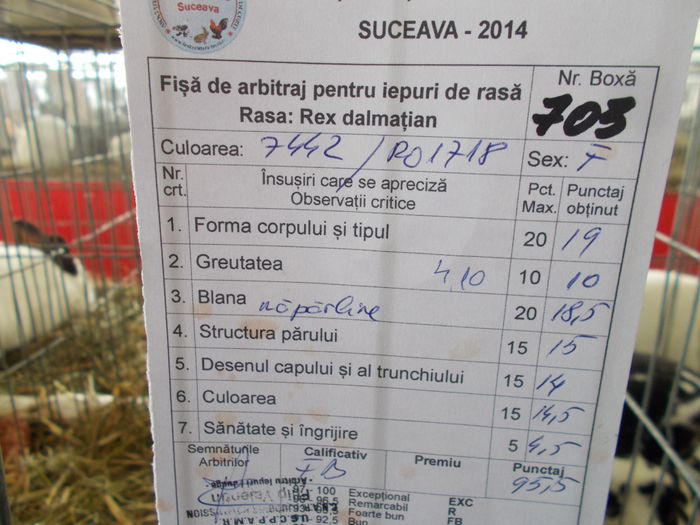 Suceava
SUCEAVA - 2014
Fișă de arbitraj pentru iepuri de rasă
Rasa: Rex dalmațian
Nr. Boxă
703
Culoarea: 7442 / RO1718
Sex: F
Nr. crt.
Însușiri care se apreciză
Observații critice
Pct. Max.
Punctaj obținut
1. Forma corpului și tipul 20 19
2. Greutatea 4,10 10 10
3. Blana năpârlire 20 18,5
4. Structura părului 15 15
5. Desenul capului și al trunchiului 15 14
6. Culoarea 15 14,5
7. Sănătate și îngrijire 5 4,5
Semnăturile Arbitrilor
Calificativ
FB
Premiu
Punctaj
95,5
100 Excepțional EXC
96.5 Remarcabil R
Foarte bun FB
92.5 Bun